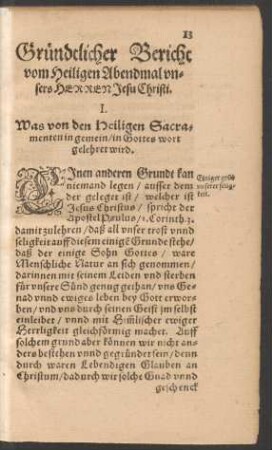 13
Gründtlicher Bericht
vom Heiligen Abendmal vn-
sers HERREN Jesu Christi.
I.
Was von den Heiligen Sacra-
menten in gemein/in Gottes wort
gelehret wird.
EInen anderen Grundt kan
niemand legen / ausser dem
der geleget ist / welcher ist
Jesus Christus / spricht der
Apostel Paulus / 1. Corinth. 3.
Einiger grūd
vnserer selig-
keit.
damit zulehren / daß all vnser trost vnnd
seligkeit auff diesem einigē Grunde stehe/
daß der einige Sohn Gottes / ware
Menschliche Natur an sich genommen/
darinnen mit seinem Leiden vnd sterben
für vnsere Sünd genug gethan/ vns Ge-
nad vnnd ewiges leben bey Gott erwor-
ben / vnd vns durch seinen Geist jm selbst
einleibet / vnnd mit Himlischer ewiger
Herrligkeit gleichförmig machet. Auff
solchem grund aber können wir nicht an-
ders bestehen vnnd gegründet sein/denn
durch waren Lebendigen Glauben an
Christum/dadurch wir solche Gnad vnnd
geschenck